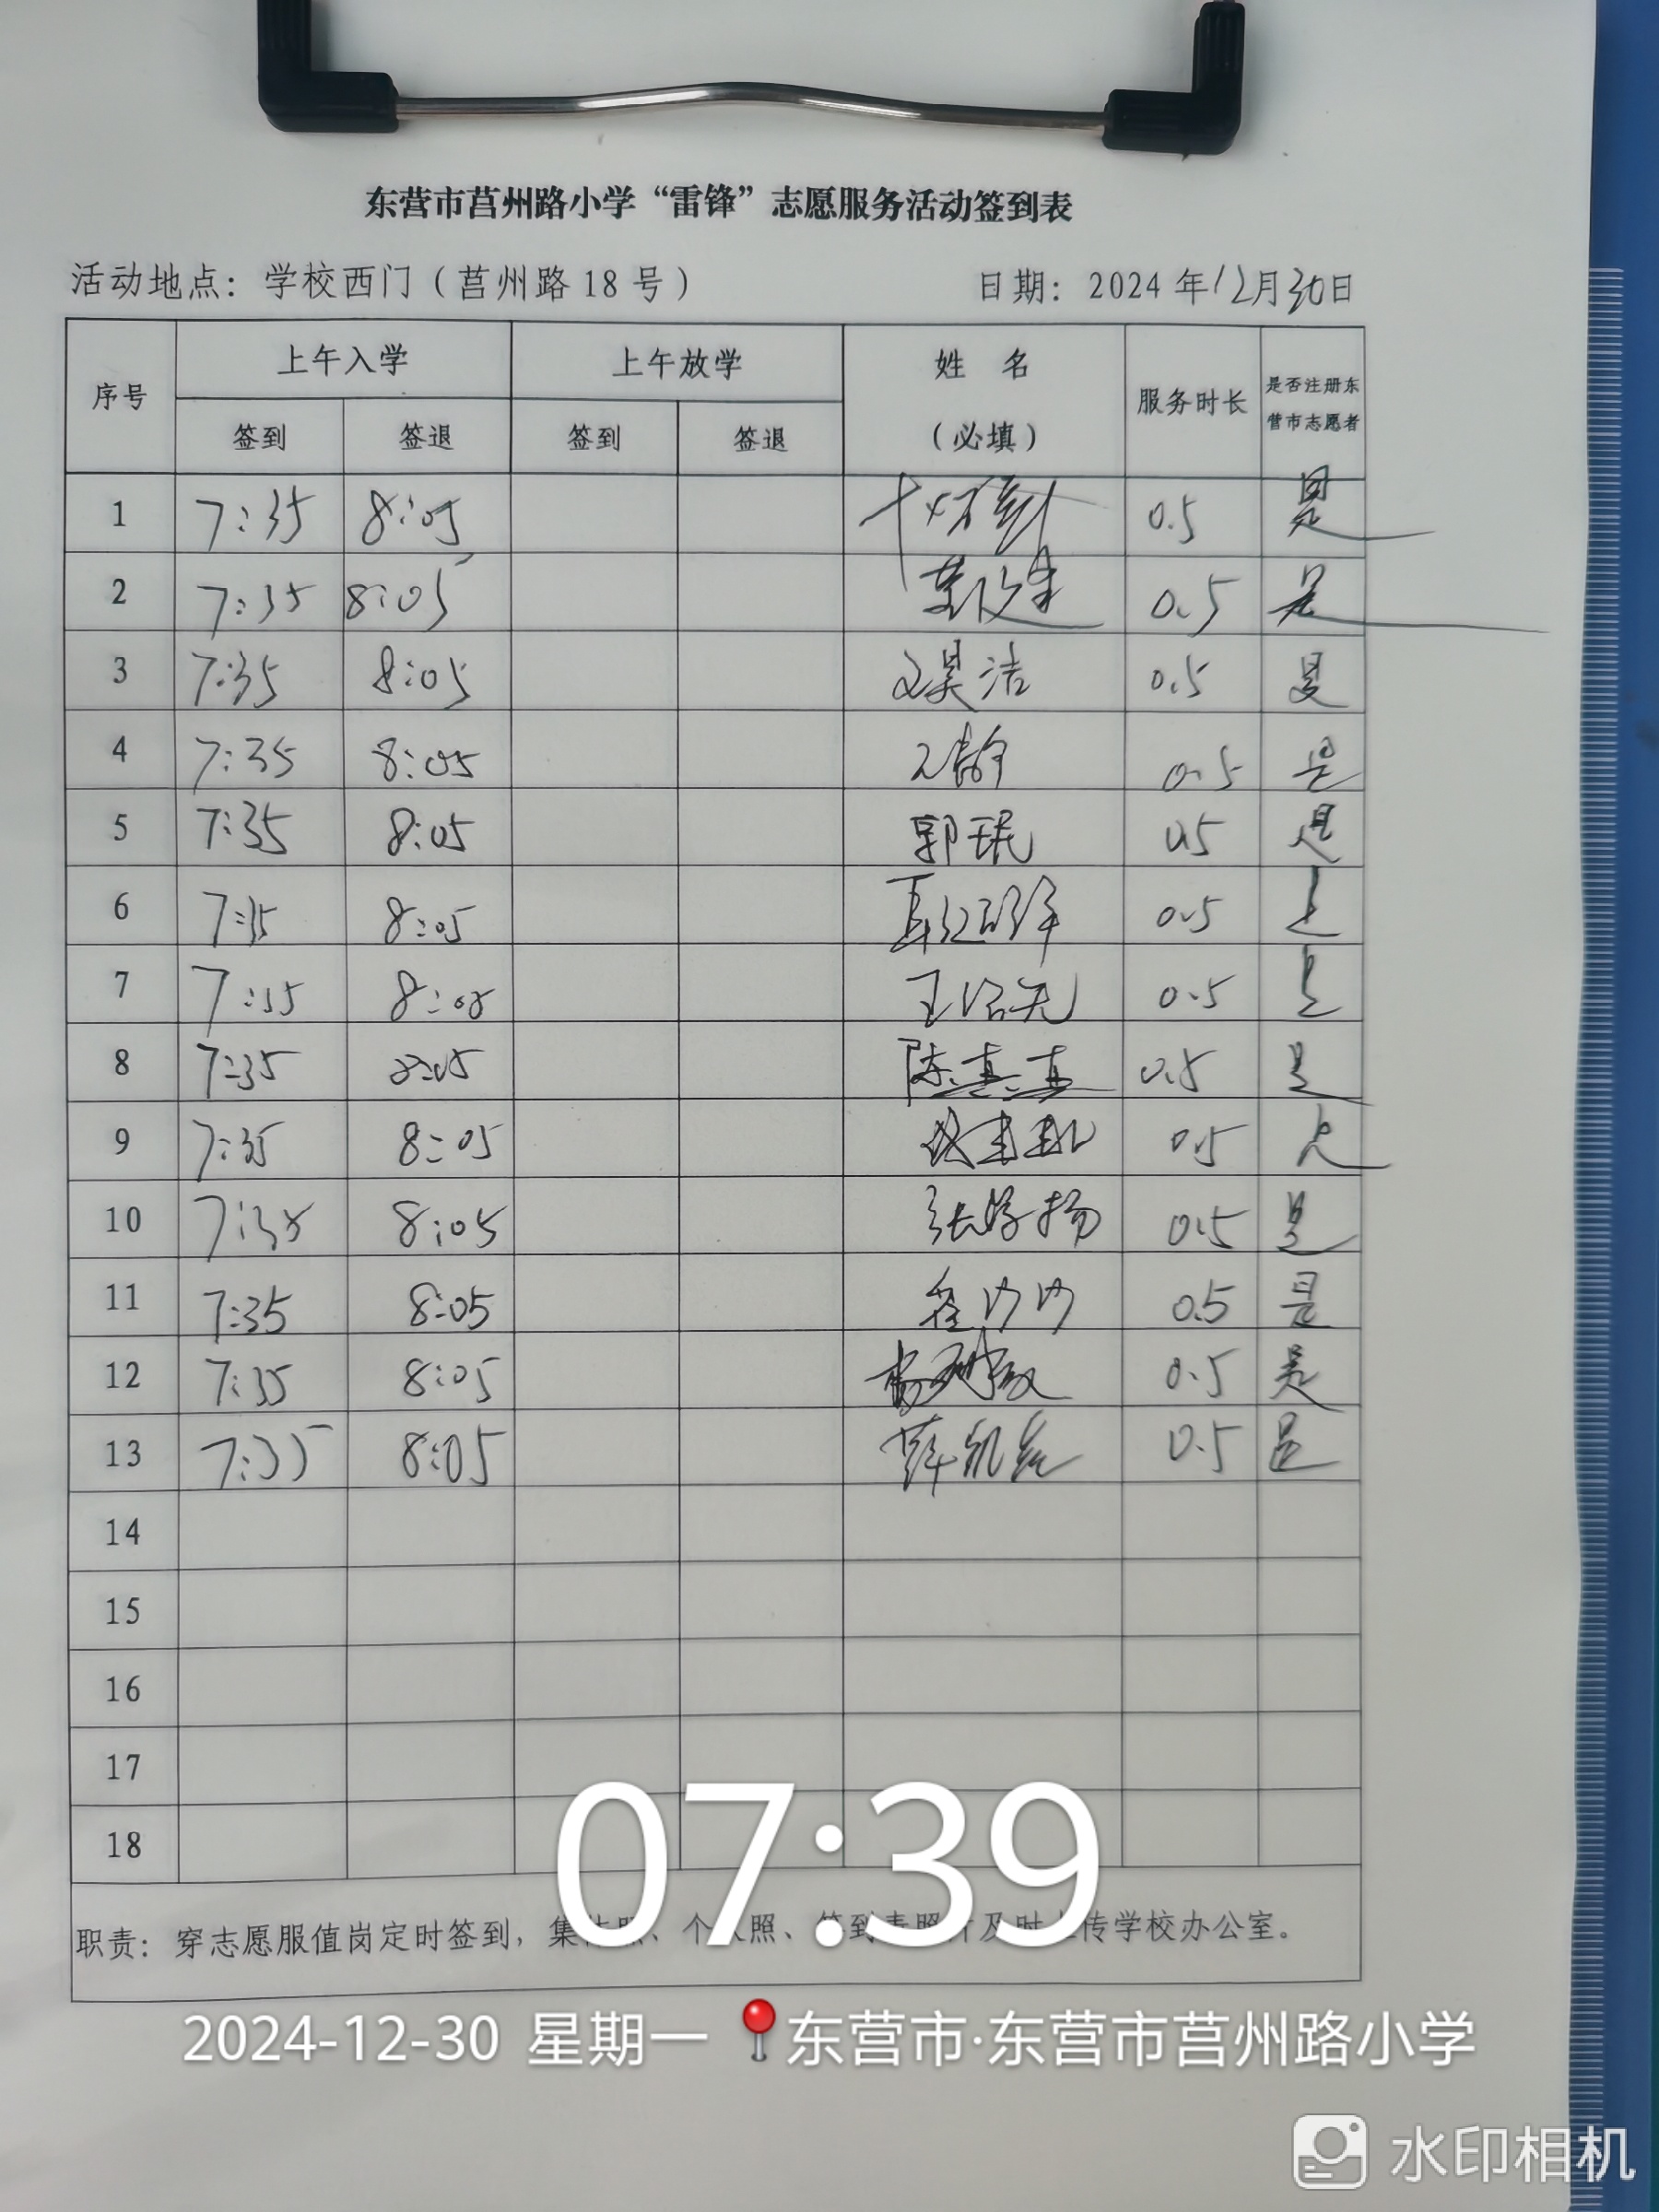 东营市莒州路小学“雷锋”志愿服务活动签到表
活动地点：学校西门（莒州路18号） 日期：2024年12月30日
序号 上午入学 上午放学 姓 名 服务时长 是否注册东
签到 签退 签到 签退 （必填） 营市志愿者
1 7:35 8:05 0.5 是
2 7:35 8:05 0.5 是
3 7:35 8:05 昊洁 0.5 是
4 7:35 8:05 0.5 是
5 7:35 8:05 郭珉 0.5 是
6 7:35 8:05 0.5 是
7 7:35 8:05 王 0.5 是
8 7:35 8:05 陈真真 0.5 是
9 7:35 8:05 0.5 是
10 7:35 8:05 张 扬 0.5 是
11 7:35 8:05 0.5 是
12 7:35 8:05 杨 0.5 是
13 7:35 8:05 薛凯 0.5 是
14
15
16
17
18
07:39
职责：穿志愿服值岗定时签到，集体照、个人照、签到表照片及时上传学校办公室。
2024-12-30 星期一 东营市·东营市莒州路小学
水印相机